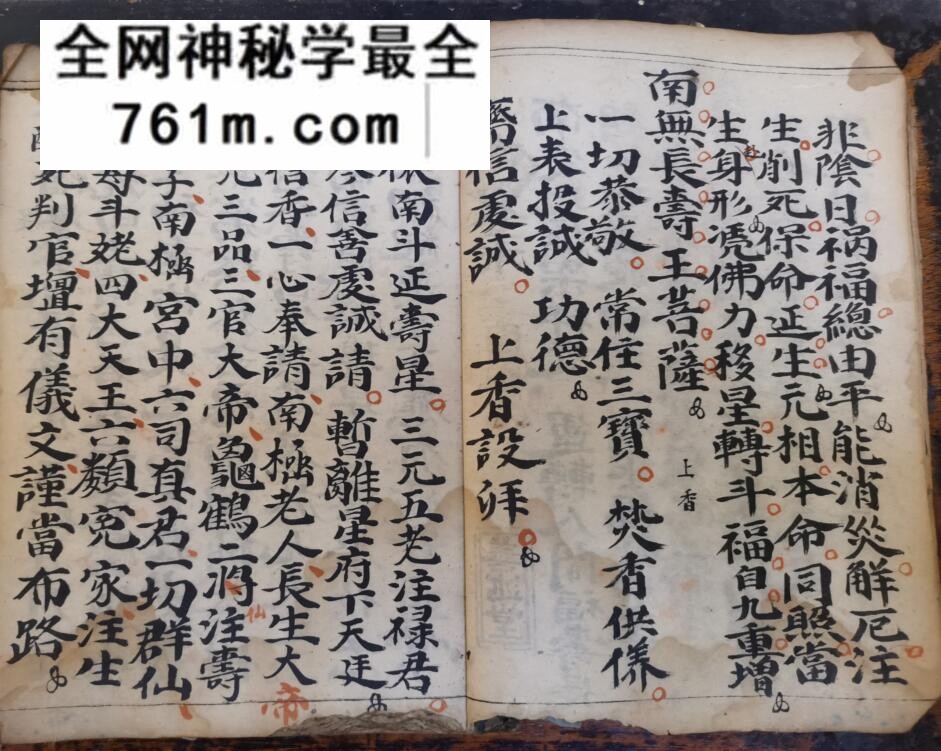 全网神秘学最全
761m.com
非陰日祸福總由平能消災解厄注
生削死保命延生元相本命同照當
生身形凭佛力移星轉斗福自九重增
南無長壽王菩薩 上香
一切恭敬 常住三寶 焚香供俻
上表投誠 功德
齋信虔誠 上香設拜
南斗延壽星三元五老注禄君
信善虔誠請暫離星府下天廷
信香一心奉請南極老人長生大帝
三品三官大帝龜鶴二將注壽仙
南極宮中六司真君一切群仙
斗姥四大天王六類冤家注生
死判官壇有儀文謹當布路